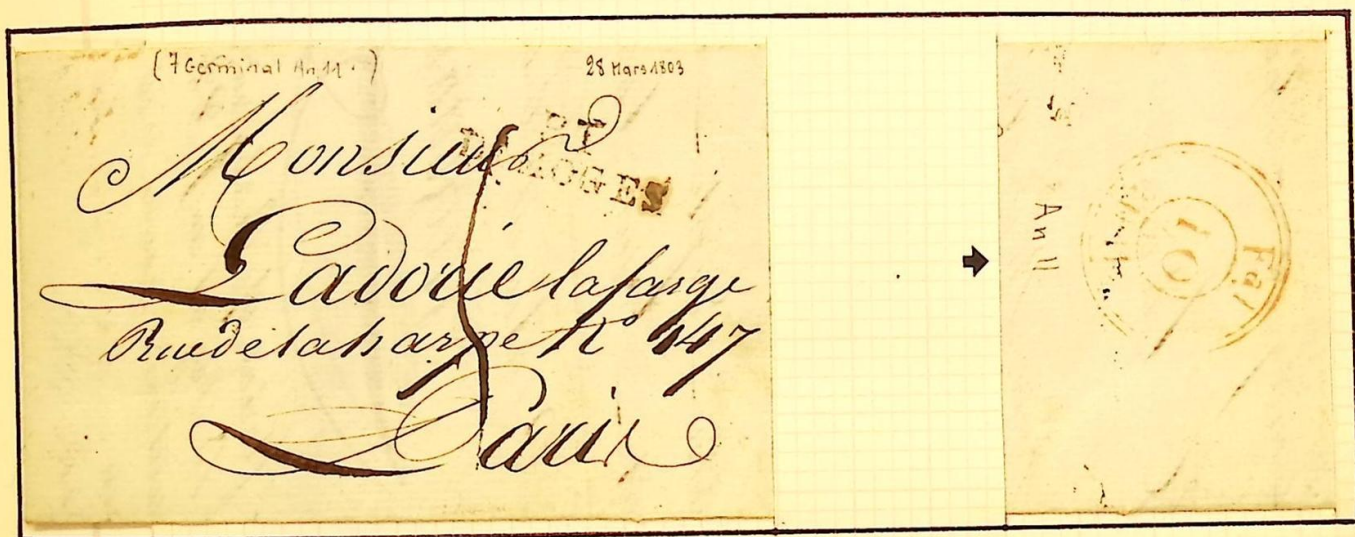 (7 Germinal An 11.)
28 Mars 1803
Monsieur
Ladorie lafarge
Rue de la harpe N° 147
Paris
An 11
10